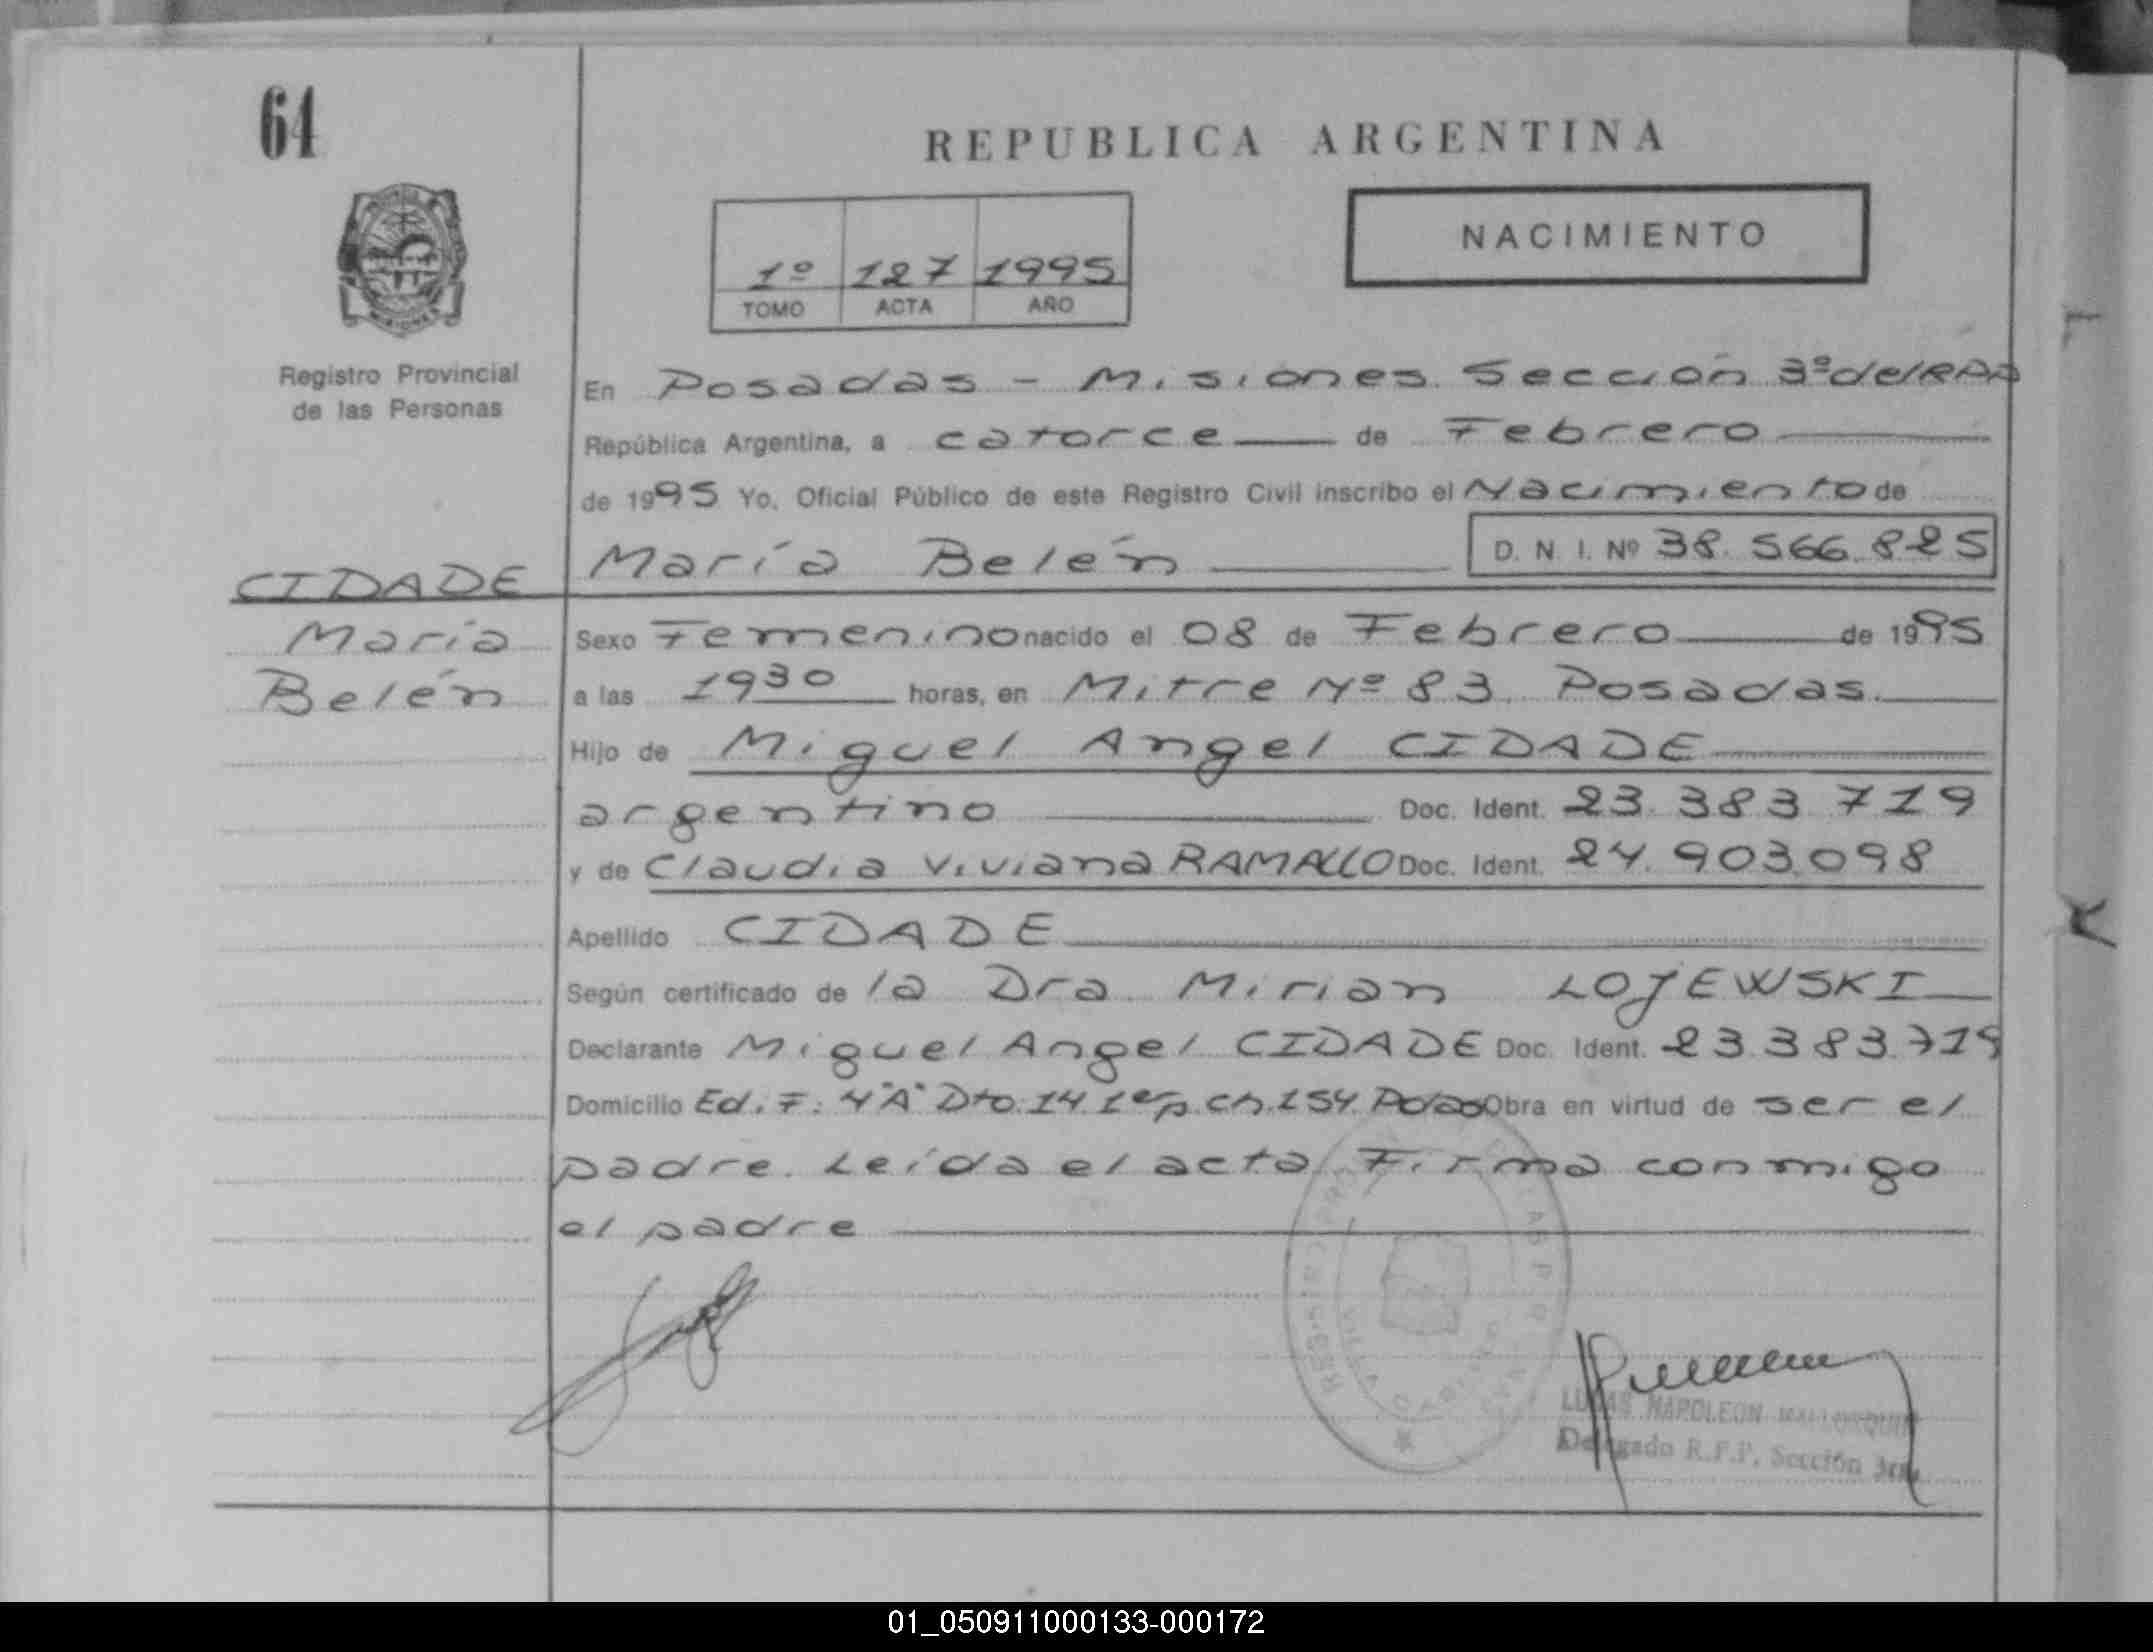 64
REPUBLICA ARGENTINA
NACIMIENTO
1º 127 1995
TOMO ACTA AÑO
MISIONES
Registro Provincial
de las Personas
En Posadas - Misiones. Sección 3º del RPP
República Argentina, a catorce de Febrero
de 1995 Yo, Oficial Público de este Registro Civil inscribo el Nacimiento de
María Belén D. N. I. Nº 38.566.825
CIDADE
María
Belén
Sexo Femenino nacido el 08 de Febrero de 1995
a las 1930 horas, en Mitre Nº 83. Posadas.
Hijo de Miguel Angel CIDADE
argentino Doc. Ident. 23.383.719
y de Claudia Viviana RAMALLO Doc. Ident. 24.903.098
Apellido CIDADE
Según certificado de la Dra. Mirian LOJEWSKI
Declarante Miguel Angel CIDADE Doc. Ident. 23.383.719
Domicilio Ed. F. 4"A" Dto. 14 1er p. ch. 154. Pdas Obra en virtud de ser el
padre. Leída el acta Firma conmigo
el padre
LUCAS NAPOLEON MALLORQUIN
Delegado R.P.P. Sección 3ra
01_050911000133-000172